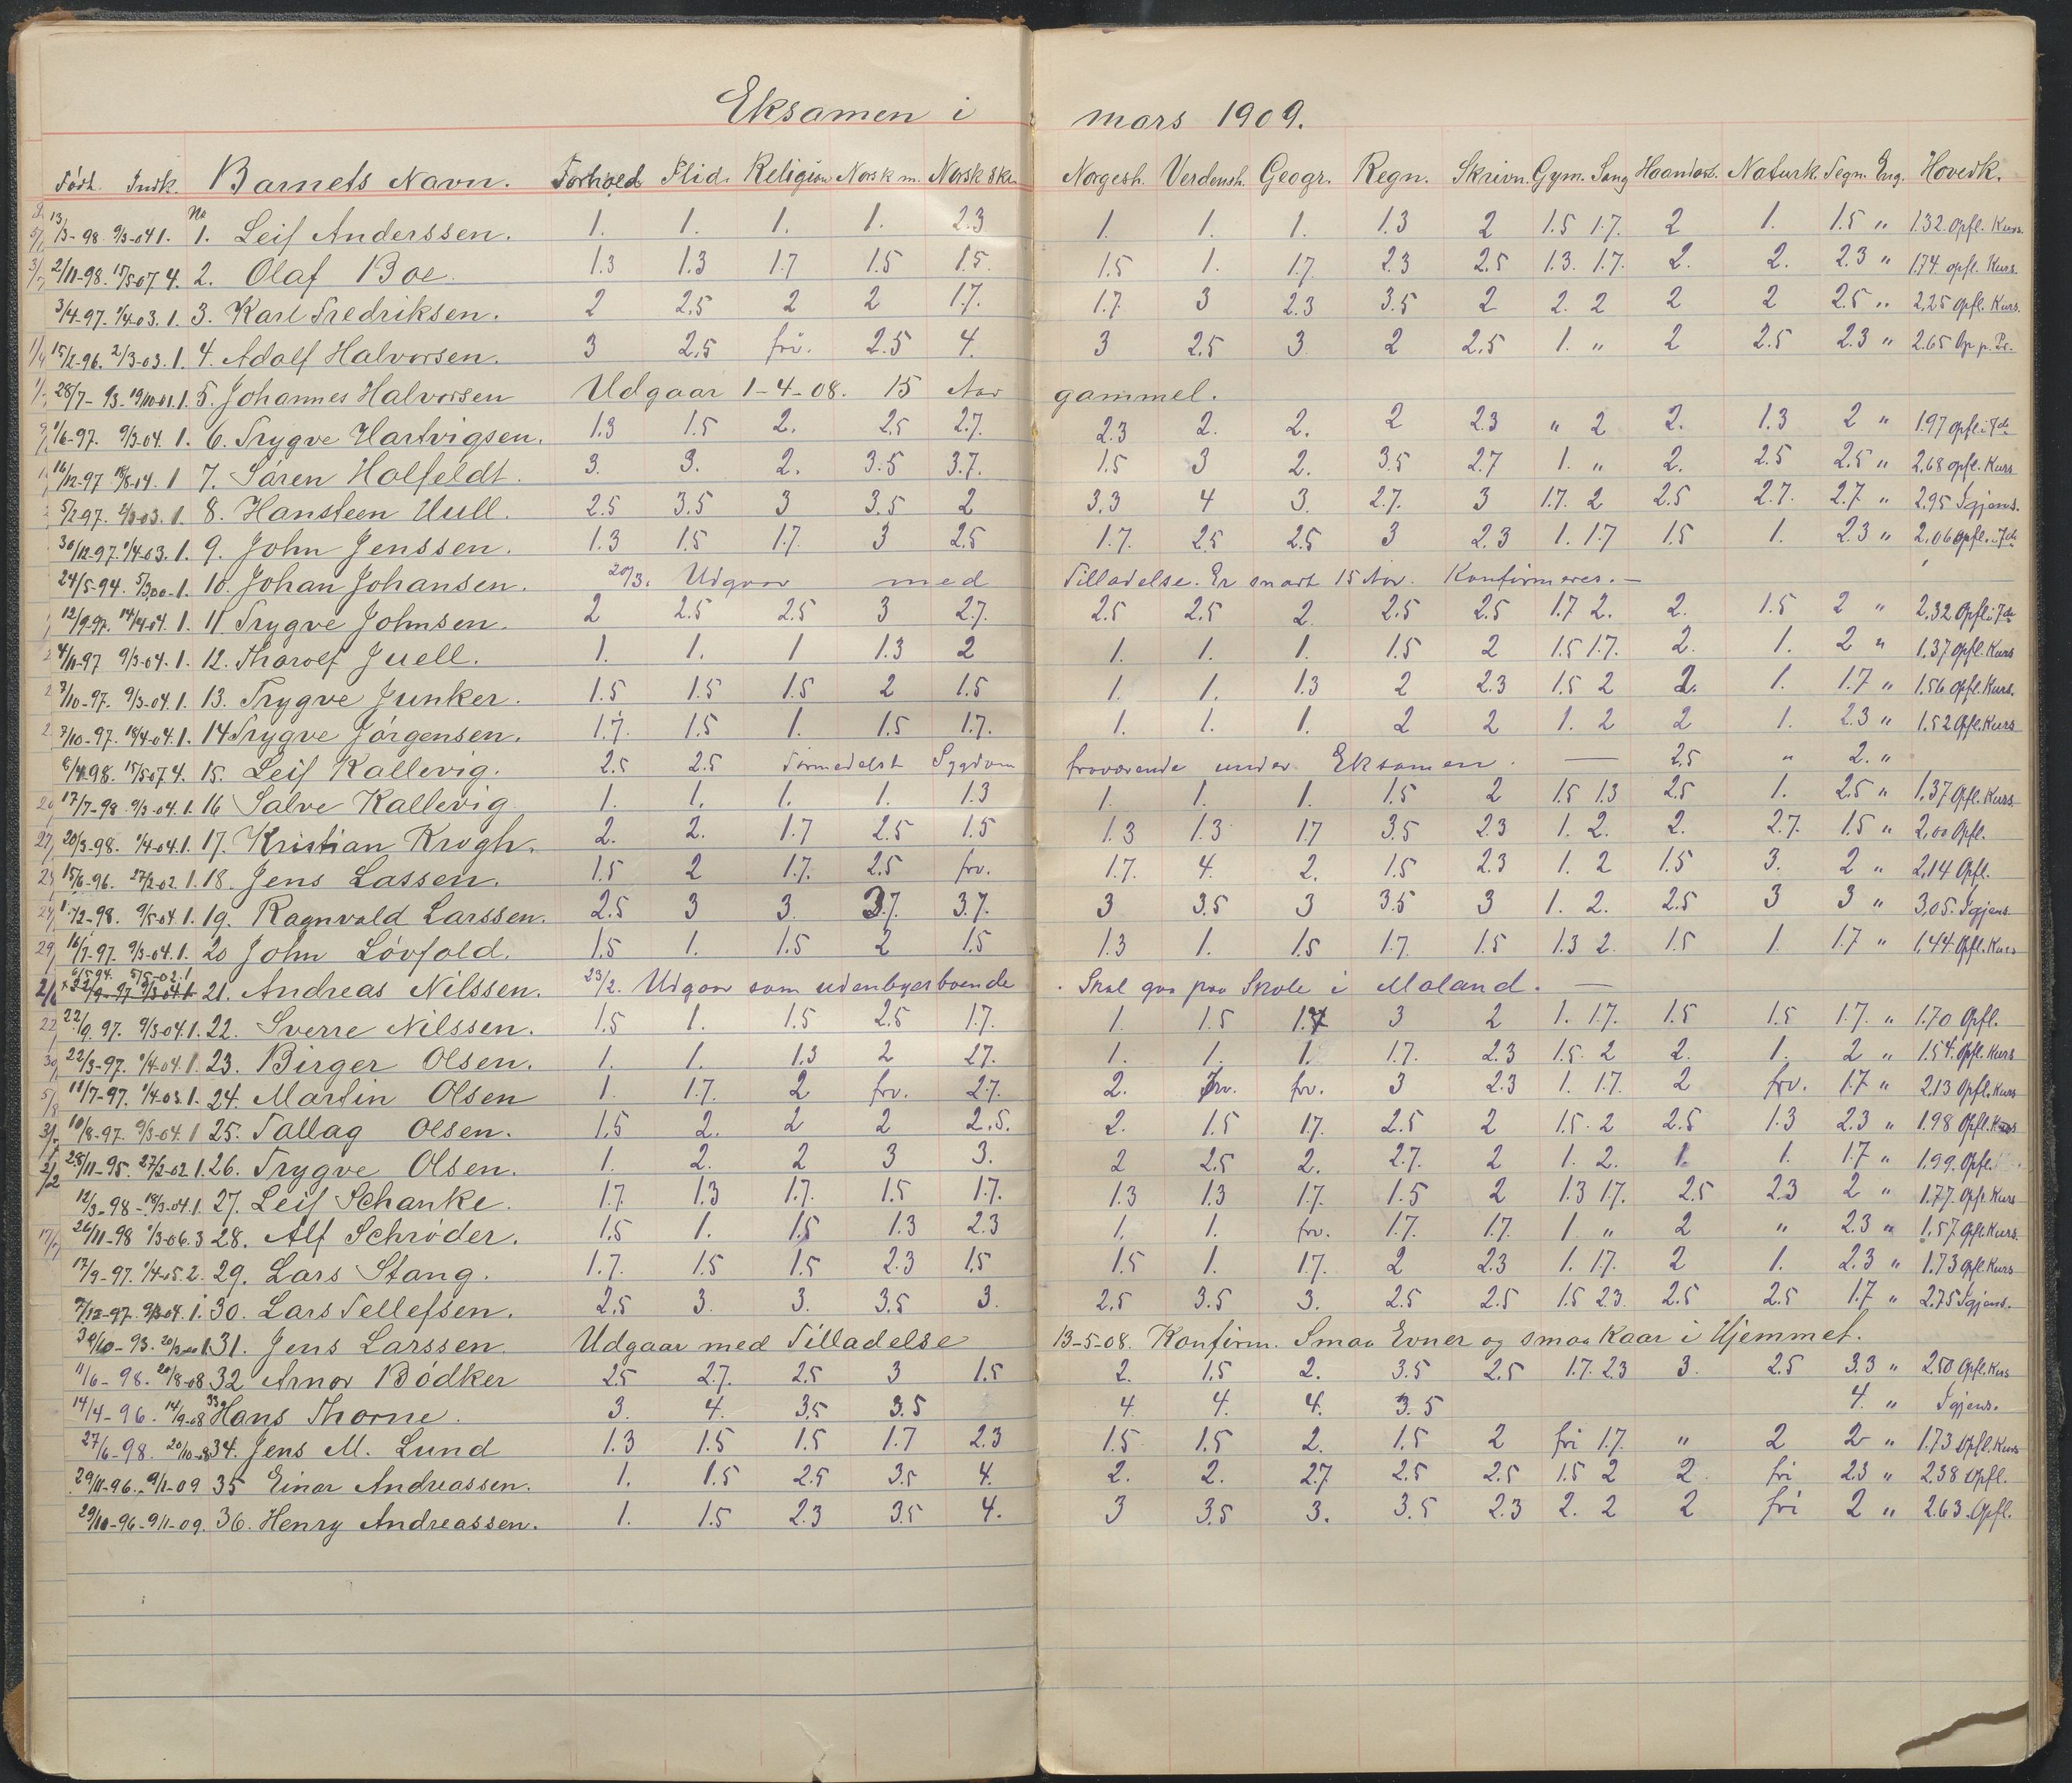 Eksamen i mars 1909.
Födt. Indk. Barnets Navn. Forhold Flid. Religion Norsk m. Norsk skr. Norgesh. Verdensh. Geogr. Regn. Skrivn. Gym. Sang Haandarb. Naturk. Tegn. Eng. Hovedk.
13/3-98. 9/3-04 1. No 1. Leif Anderssen. 1. 1. 1. 1. 2.3 1. 1. 1. 1.3 2 1.5 1.7. 2 1. 1.5 " 1.32. Opfl. Kurs.
2/11-98. 15/5-07 4. 2. Olaf Boe. 1.3 1.3 1.7 1.5 1.5. 1.5 1. 1.7 2.3 2.5 1.3. 1.7. 2. 2. 2.3 " 1.74. opfl. Kurs.
3/4-97. 1/4-03. 1. 3. Karl Fredriksen. 2 2.5 2 2 1.7. 1.7. 3 2.3 3.5 2 2. 2 2 2 2.5 " 2.25 Opfl. Kurs.
15/12-96. 2/3-03. 1. 4. Adolf Halvorsen. 3 2.5 frv. 2.5 4. 3 2.5 3 2 2.5 1. " 2 2.5 2.3 " 2.65 Op p. Pr.
28/7-93. 19/10-01. 1. 5. Johannes Halvorsen Udgaar 1-4-08. 15 Aar gammel.
1/6-97. 9/3-04. 1. 6. Trygve Hartvigsen. 1.3 1.5 2. 2.5 2.7. 2.3 2. 2. 2 2.3 " 2 2. 1.3 2 " 1.97 opfl. i 7de
16/12-97 18/8-04. 1 7. Sören Holfeldt. 3. 3. 2. 3.5 3.7. 1.5 3 2. 3.5 2.7 1. " 2. 2.5 2.5 " 2.68 opfl. Kurs
5/2-97. 2/3-03. 1. 8. Hansteen Uull. 2.5 3.5 3 3.5 2 3.3 4 3. 2.7. 3 1.7. 2 2.5 2.7. 2.7 " 2.95 Igjens.
30/12-97. 1/4-03. 1. 9. John Jenssen. 1.3 1.5 1.7. 3 2.5 1.7. 2.5 2.5 3 2.3 1. 1.7 1.5 1. 2.3 " 2.06 opfl. i 7de
24/5-94. 5/3-00-1. 10. Johan Johansen. 20/3. Udgaar med Tilladelse. Er snart 15 Aar. Konfirmeres.—
12/9-97. 14/4-04. 1. 11. Trygve Johnsen. 2 2.5 2.5 3 2.7. 2.5 2.5 2 2.5 2.5 1.7 2. 2. 1.5 2 " 2.32 Opfl. i 7de
4/11-97 9/3-04. 1. 12. Tharolf Juell. 1. 1. 1 1.3 2 1. 1. 1. 1.5 2 1.5 1.7. 2. 1. 2 " 1.37 Opfl. Kurs
7/10-97. 9/3-04. 1. 13. Trygve Junker. 1.5 1.5 1.5 2 1.5 1. 1. 1.3 2 2.3 1.5 2 2. 1. 1.7 " 1.56 Opfl. Kurs.
7/10-97. 18/4-04. 1. 14 Trygve Jörgensen. 1.7. 1.5 1. 1.5 1.7. 1. 1. 1. 2 2 1. 2 2 1. 2.3 " 1.52 Opfl. Kurs
15/5-07 4. 15. Leif Kallevig. 2.5 2.5 Formedelst Sygdom fraværende under Eksamen. — 2.5 " 2. "
17/7-98. 9/3-04. 1. 16 Salve Kallevig 1. 1. 1. 1. 1.3 1. 1. 1. 1.5 2 1.5 1.3 2.5 1. 2.5 " 1.37 Opfl. Kurs
20/3-98. 1/4-04. 1. 17. Kristian Krogh. 2. 2. 1.7 2.5 1.5 1.3 1.3 1.7 3.5 2.3 1. 2. 2. 2.7. 1.5 " 2.00 Opfl.
15/6-96. 27/2-02. 1. 18. Jens Lassen. 1.5 2 1.7. 2.5 frv. 1.7. 4. 2. 1.5 2.3 1. 2 1.5 3. 2 " 2.14 Opfl.
1/2-98. 9/5-04. 1. 19. Ragnvald Larssen. 2.5 3 3. 3.7. 3.7. 3 3.5 3 3.5 3 1. 2. 2.5 3 3 " 3.05. Igjens
16/7-97. 9/3-04. 1. 20 John Lövfold. 1.5 1. 1.5 2 1.5 1.3 1. 1.5 1.7. 1.5 1.3 2. 1.5 1. 1.7 " 1.44. Opfl. Kurs
6/5 94. 5/5-02. 1 21. Andreas Nilssen. 23/2. Udgaar som udenbyesboende. Skal gaa paa Skole i Moland. —
22/9. 97. 9/3-04. 1. 22. Sverre Nilssen. 1.5 1. 1.5 2.5 1.7. 1. 1.5 1.7 3 2 1. 1.7. 1.5 1.5 1.7. " 1.70 Opfl.
22/3-97. 1/4-04. 1. 23. Birger Olsen. 1. 1. 1.3 2 2.7. 1. 1. 1. 1.7. 2.3 1.5. 2 2. 1. 2 " 1.54. Opfl. Kurs
11/7-97. 1/4-03. 1. 24. Martin Olsen 1. 1.7. 2 frv. 2.7. 2. frv. frv. 3 2.3 1. 1.7. 2 frv. 1.7 " 2.13 Opfl. Kurs
10/8-97. 9/3-04. 1 25. Tallag Olsen. 1.5 2. 2 2 2.5. 2. 1.5 1.7. 2.5 2 1.5. 2 2.5 1.3 2.3 " 1.98 Opfl. Kurs
28/11-95. 27/2-02 1. 26. Trygve Olsen. 1. 2. 2 3 3. 2 2.5 2. 2.7. 2 1. 2. 1. 1. 1.7 " 1.99. Opfl.
12/3-98-18/3-04. 1. 27. Leif Schanke. 1.7. 1.3 1.7. 1.5 1.7. 1.3 1.3 1.7. 1.5 2 1.3 1.7. 2.5 2.3 2 " 1.77. Opfl. Kurs
26/11-98 1/3-06. 3 28. Alf Schröder. 1.5 1. 1.5 1.3 2.3 1. 1. frv. 1.7. 1.7. 1 " 2 " 2.3 " 1.57. Opfl. Kurs.
17/9-97. 1/4-05. 2. 29. Lars Stang. 1.7. 1.5 1.5 2.3 1.5 1.5 1. 1.7. 2 2.3 1. 1.7. 2 1. 2.3 " 1.73 Opfl. Kurs
7/12-97. 9/3-04. 1. 30. Lars Tellefsen. 2.5 3. 3. 3.5 3. 2.5 3.5 3. 2.5 2.5 1.5 2.3. 2.5 2.5 1.7 " 2.75 Igjens.
30/10-93. 1 31. Jens Larssen Udgaar med Tilladelse 13-5-08. Konfirm. Smaa Evner og smaa Kaar i Hjemmet.
11/6-98. 20/8-08 32 Arnor Bödker 2.5 2.7. 2.5 3 1.5 2. 1.5 2. 3.5 2.5 1.7. 2.3 3. 2.5 3.3 " 2.50 Opfl. Kurs
14/4-96. 14/9-08 33 Hans Thorne. 3. 4. 3.5 3.5 4 4. 4. 3.5 4. " Igjens.
27/6-98. 20/10-08 34. Jens M. Lund 1.3 1.5 1.5 1.7 2.3 1.5 1.5 2. 1.5 2 fri 1.7. " 2 2 " 1.73 Opfl. Kurs
29/11-96. 9/1-09 35 Einar Andreassen. 1. 1.5 2.5 3.5 4. 2. 2. 2.7 2.5 2.5 1.5 2 2 fri 2.3 " 2.38 Opfl.
29/10-96-9/1-09. 36. Henry Andreassen. 1. 1.5 2.3 3.5 4. 3 3.5 3. 3.5 2.3 2. 2 2 fri 2 " 2.63. Opfl.